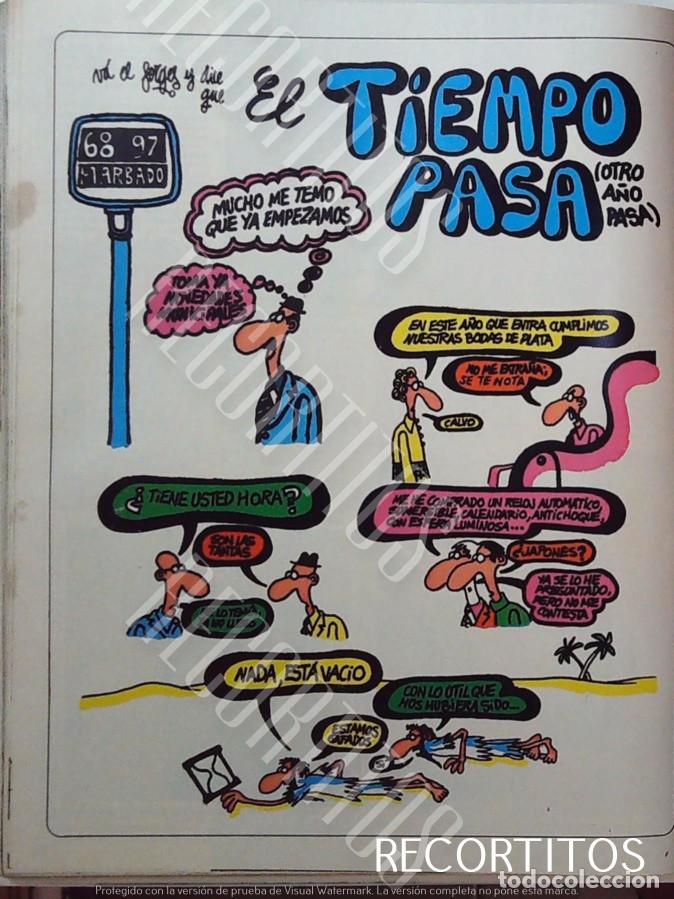 vá el forges y dice
que
El TiEMPO
PASA
(OTRO
AÑO
PASA)
68 97
MARBADO
MUCHO ME TEMO
QUE YA EMPEZAMOS
TOMA YA
NOVEDADES
MUNICIPALES
EN ESTE AÑO QUE ENTRA CUMPLIMOS
NUESTRAS BODAS DE PLATA
NO ME EXTRAÑA;
SE TE NOTA
CALVO
¿TIENE USTED HORA?
SON LAS
TANTAS
LO TEMÍA,
NO LLEGO
ME HE COMPRADO UN RELOJ AUTOMATICO,
SUMERGIBLE, CALENDARIO, ANTICHOQUE,
CON ESFERA LUMINOSA...
¿JAPONES?
YA SE LO HE
PREGUNTADO,
PERO NO ME
CONTESTA
NADA, ESTÁ VACIO
CON LO UTIL QUE
NOS HUBIERA SIDO...
ESTAMOS
GAFADOS
RECORTITOS
RECORTITOS
RECORTITOS
RECORTITOS
RECORTITOS
todocoleccion
Protegido con la versión de prueba de Visual Watermark. La versión completa no pone esta marca.